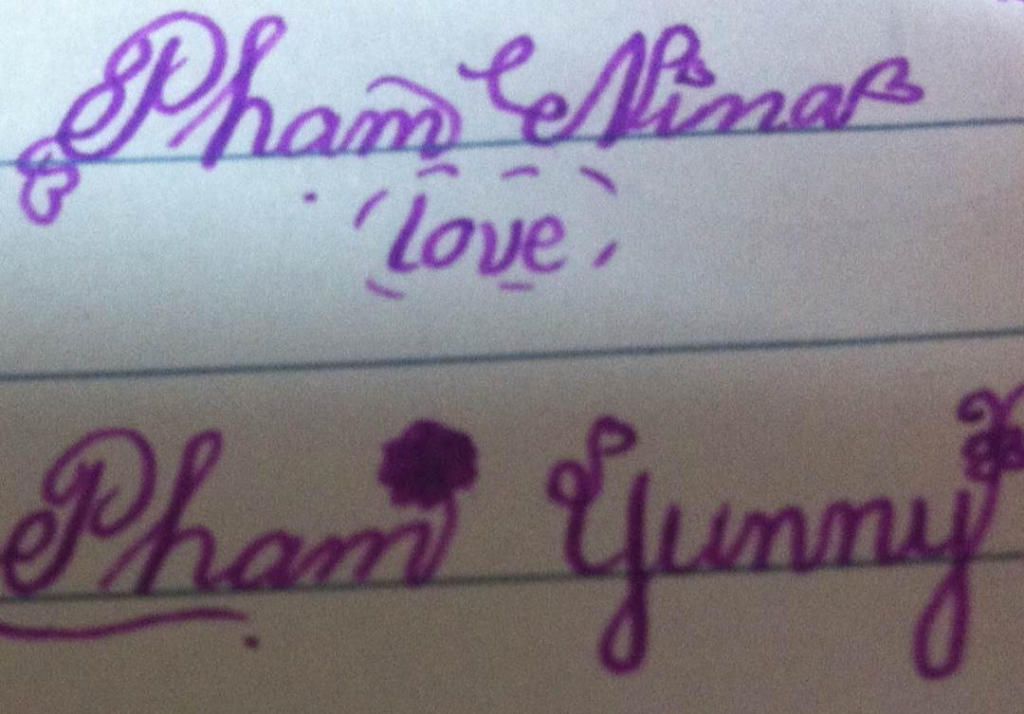 Pham Nina
Love
Pham Yunny